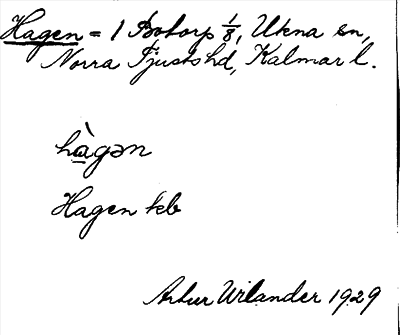 Hagen = 1 Botorp 1/8, Ukna sn,
Norra Tjusts hd, Kalmar l.
hàgən
Hagen keb
Artur Wilander 1929